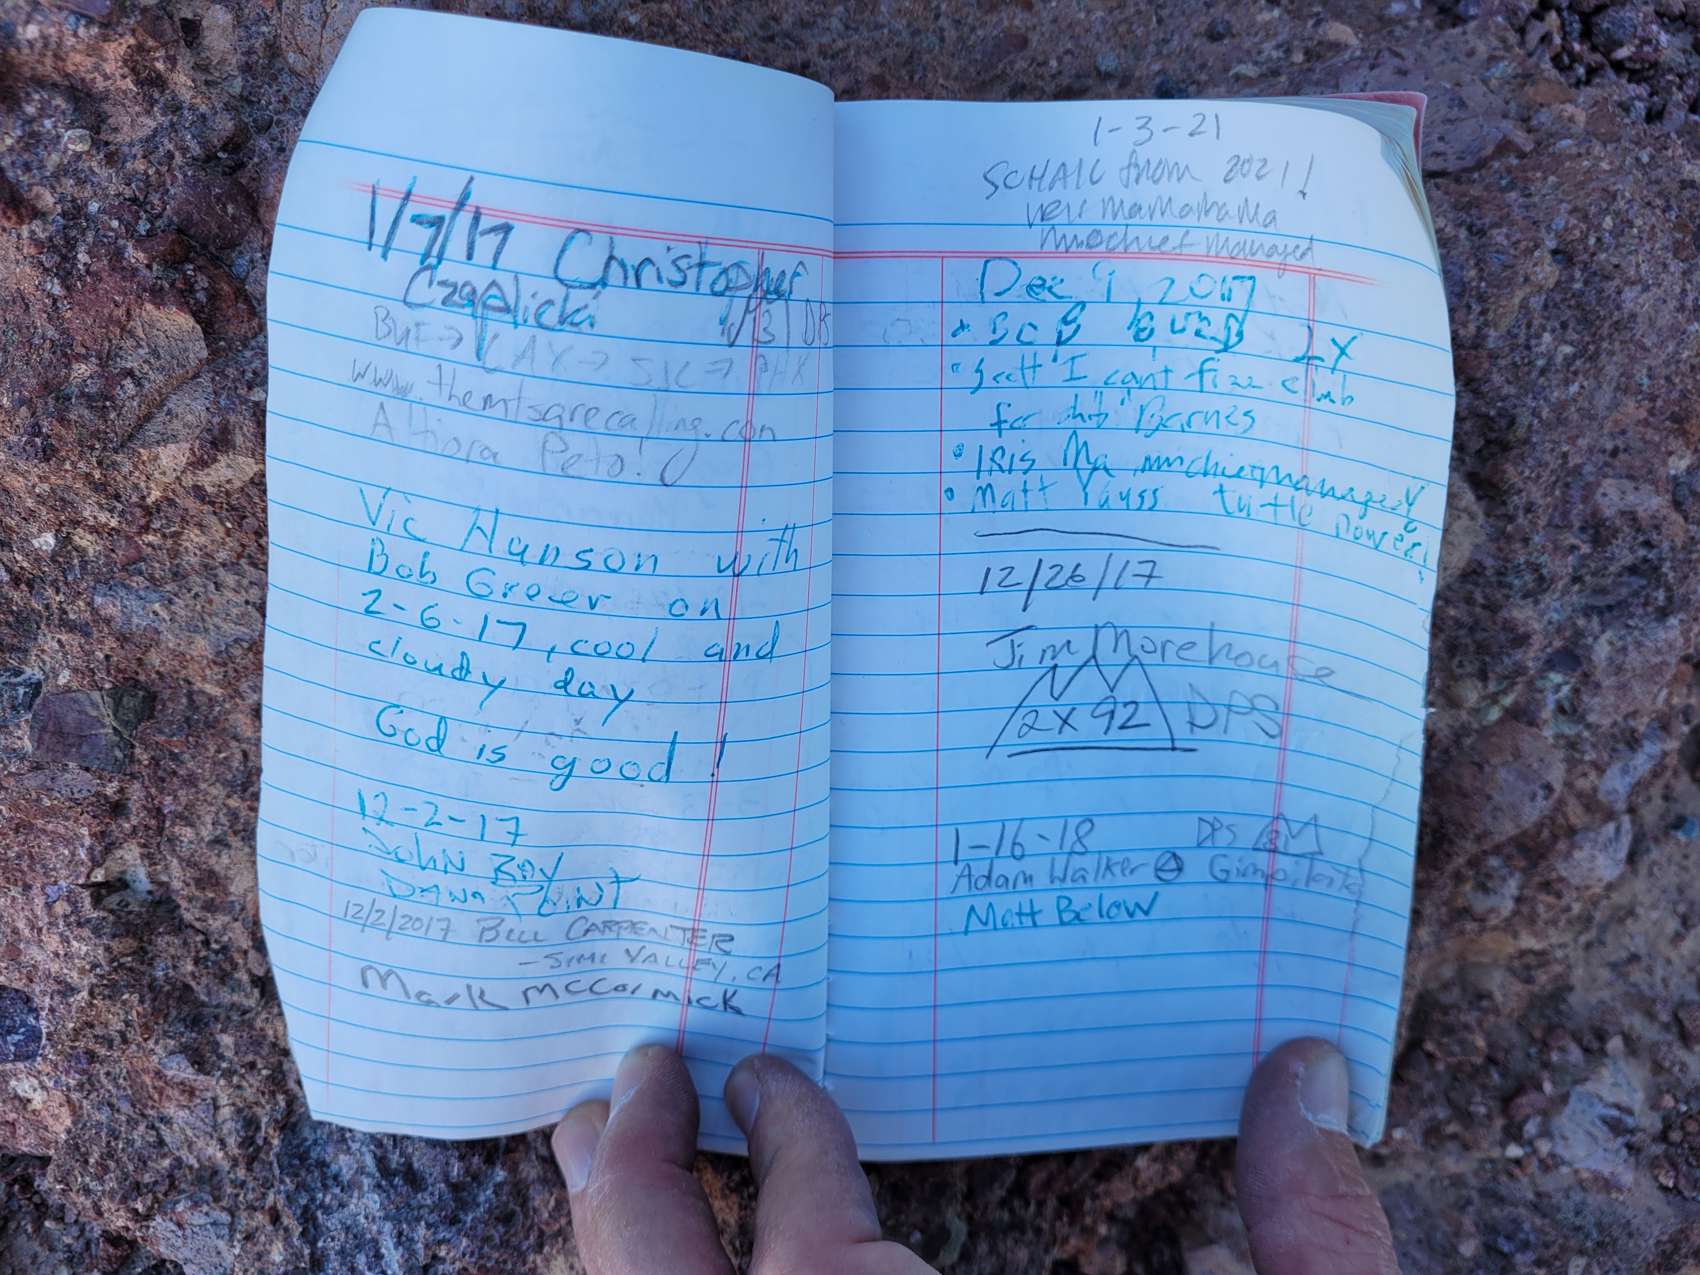 1/7/17 Christopher
Czaplicki
BUF → LAX → SJC → PHX
www.themtsarecalling.com
Altiora Peto!
Vic Hanson with
Bob Greer on
2-6-17, cool and
cloudy day
God is good!
12-2-17
JOHN RAY
DANA POINT
12/2/2017 BILL CARPENTER
- SIMI VALLEY, CA
Mark McCormick
1-3-21
from 2021!
mamahaha
mischief managed
Dec 9, 2017
BCB 2X
Scott "I can't fizz club
for shit" Barnes
IRIS Ma mischiefmanaged
Matt Yauss turtle power!
12/26/17
Jim Morehouse
2X92 DPS
1-16-18 DPS
Adam Walker
Matt Below